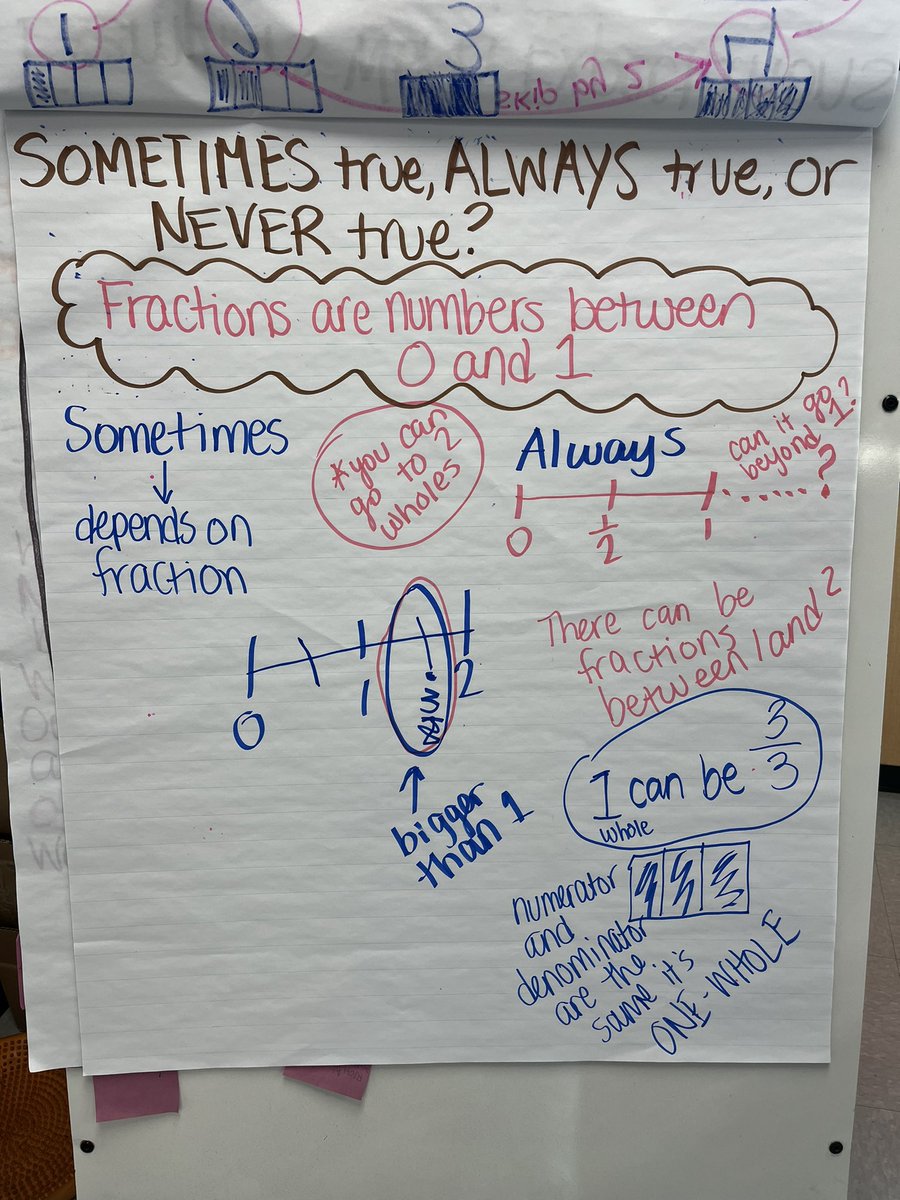 1
3
4
skip by 2
SOMETIMES true, ALWAYS true, or
NEVER true?
Fractions are numbers between
0 and 1
Sometimes
↓
depends on
fraction
*you can
go to 2
wholes
Always
can it go
beyond 1?
0 1/2 1 ?
0 1 2
↑
bigger
than 1
There can be
fractions
between 1 and 2
1 can be 3/3
whole
numerator
and
denominator
are the
same it's
ONE-WHOLE